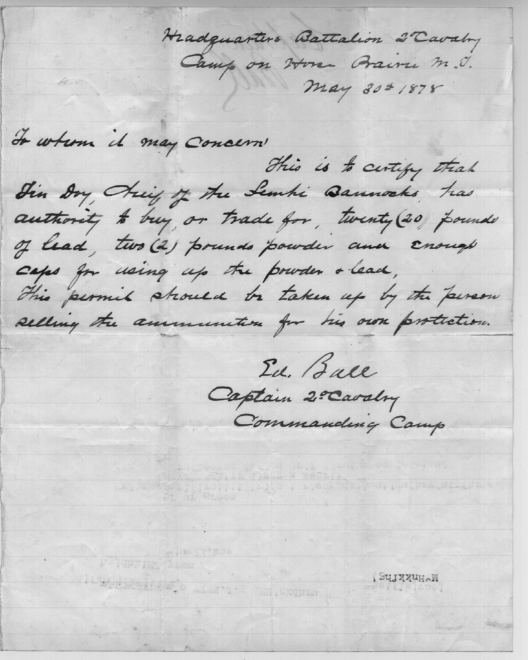 Headquarters Battalion 2d Cavalry
Camp on Horse Prairie M.T.
May 30th 1878
To whom it may Concern
This is to certify that
Tin Doy, Cheif of the Lemhi Bannocks, has
authority to buy, or trade for, twenty (20) pounds
of lead, two (2) pounds powder and enough
caps for using up the powder & lead,
This permit should be taken up by the person
selling the ammunition for his own protection.
Ed. Ball
Captain 2d Cavalry
Commanding Camp